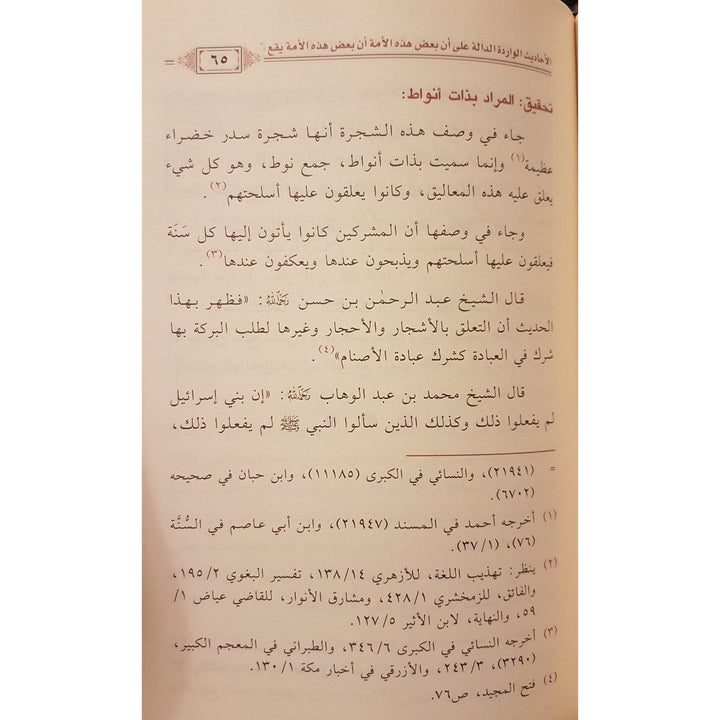 الأحاديث الواردة الدالة على أن بعض هذه الأمة أن بعض هذه الأمة يقع
٦٥
تحقيق: المراد بذات أنواط:
جاء في وصف هذه الشجرة أنها شجرة سدر خضراء
عظيمة(١) وإنما سميت بذات أنواط، جمع نوط، وهو كل شيء
يعلق عليه هذه المعاليق، وكانوا يعلقون عليها أسلحتهم(٢).
وجاء في وصفها أن المشركين كانوا يأتون إليها كل سَنَة
فيعلقون عليها أسلحتهم ويذبحون عندها ويعكفون عندها(٣).
قال الشيخ عبد الرحمٰن بن حسن رَحِمَهُ اللهُ: «فظهر بهذا
الحديث أن التعلق بالأشجار والأحجار وغيرها لطلب البركة بها
شرك في العبادة كشرك عبادة الأصنام»(٤).
قال الشيخ محمد بن عبد الوهاب رَحِمَهُ اللهُ: «إن بني إسرائيل
لم يفعلوا ذلك وكذلك الذين سألوا النبي ﷺ لم يفعلوا ذلك،
= (٢١٩٤١)، والنسائي في الكبرى (١١١٨٥)، وابن حبان في صحيحه
(٦٧٠٢).
(١) أخرجه أحمد في المسند (٢١٩٤٧)، وابن أبي عاصم في السُّنَّة
(٧٦)، (٣٧/١).
(٢) ينظر: تهذيب اللغة، للأزهري ١٣٨/١٤، تفسير البغوي ١٩٥/٢،
والفائق، للزمخشري ٤٢٨/١، ومشارق الأنوار، للقاضي عياض ١/
٥٩، والنهاية، لابن الأثير ١٢٧/٥.
(٣) أخرجه النسائي في الكبرى ٣٤٦/٦، والطبراني في المعجم الكبير،
(٣٢٩٠)، ٢٤٣/٣، والأزرقي في أخبار مكة ١٣٠/١.
(٤) فتح المجيد، ص٧٦.